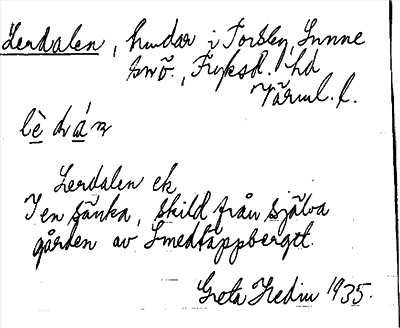 Lerdalen, hudar i Torsby, Sunne
snö., Fryksd. hd
Värml. l.
lè dá n
Lerdalen ek
I en sänka, skild från själva
gården av Smedtäppberget.
Greta Hedin 1935.